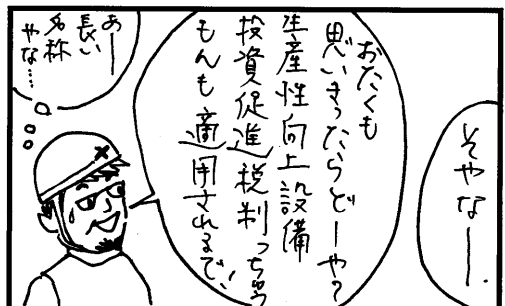 そやなー.
おたくも
思いきったらどーや?
生産性向上設備
投資促進税制っちゅう
もんも適用されるで、
あー
長い
名称
やな…